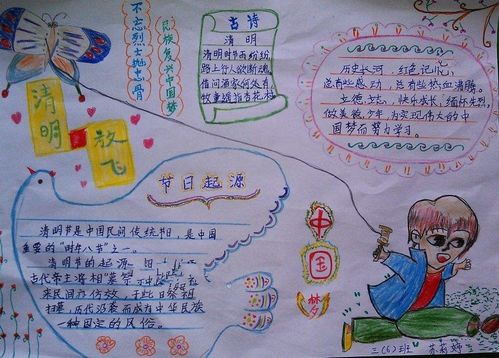 不忘烈士地忠骨
民族复兴中国梦
古诗
清明
清明时节雨纷纷
路上行人欲断魂
借问酒家何处有
牧童遥指杏花
历史长河，红色记忆，
总有些感动，总有些热血沸腾。
立德，立志，快乐成长，缅怀先烈，
做美德少年，为实现伟大的中
国梦而努力学习。
清明
放飞
节日起源
清明节是中国民间传统节日，是中国
重要的“时年八节”之一。
清明节的起源，
古代帝王将相“墓祭
来民间亦仿效，于此日祭祖
扫墓，历代沿袭而成为中华民族
一种固定的风俗。
中
国
梦
三（6）班